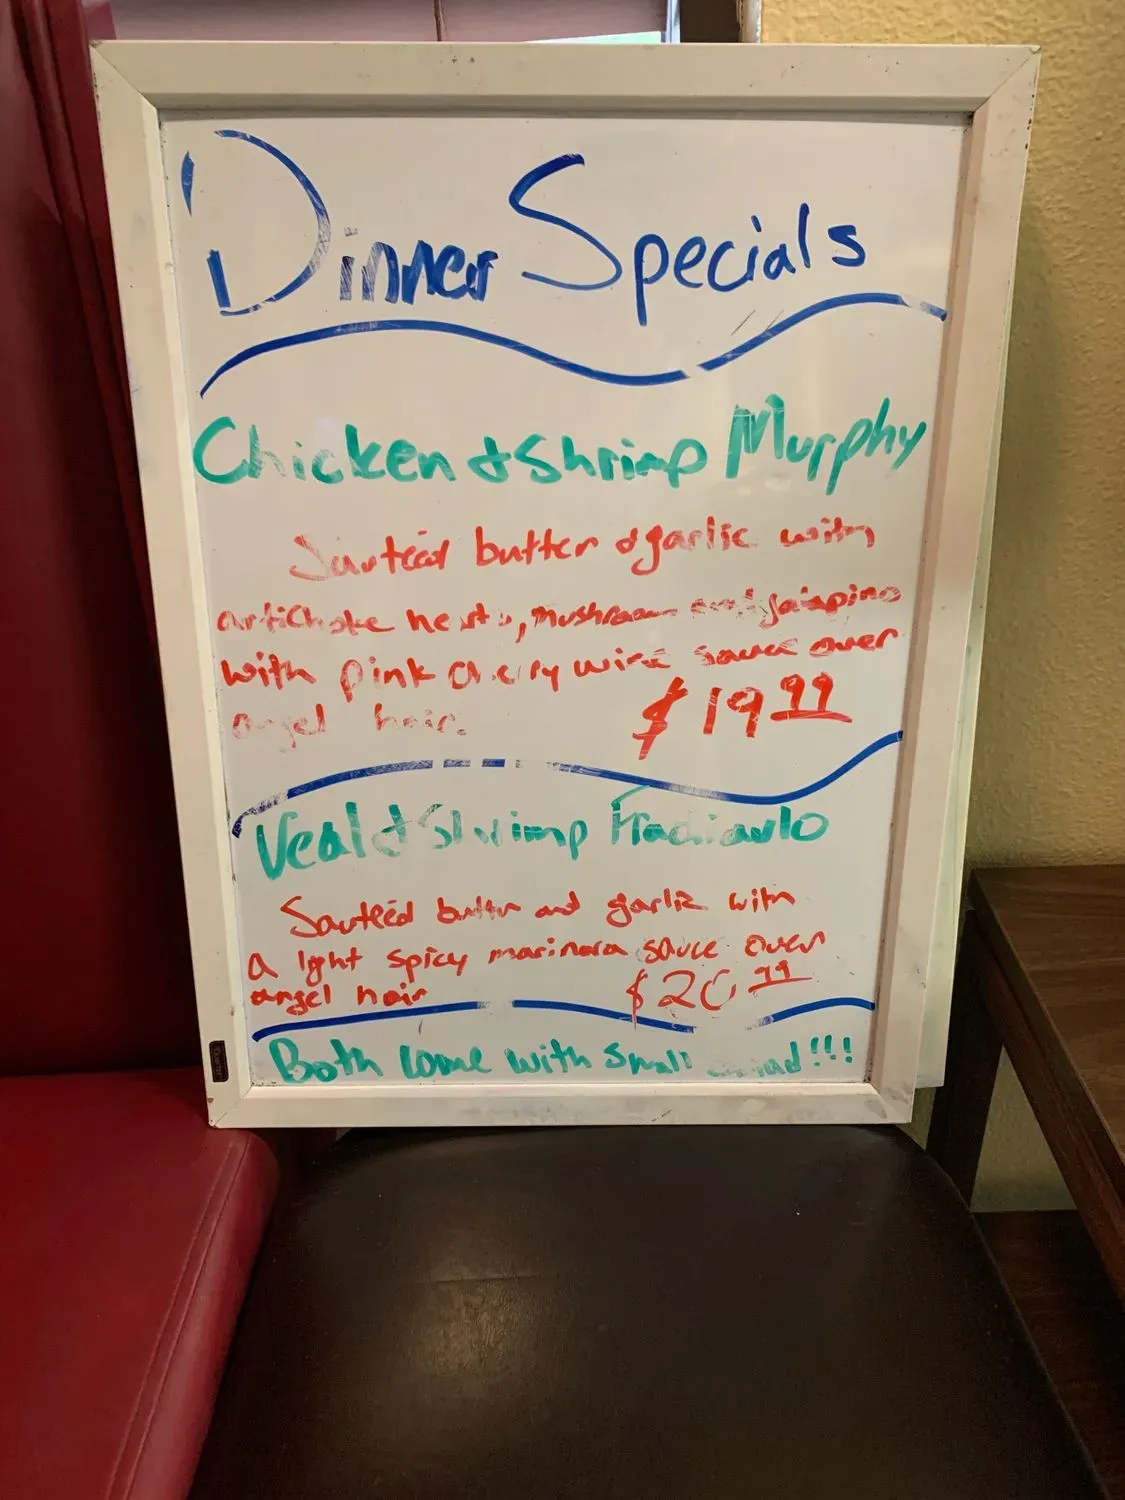 Dinner Specials
Chicken & Shrimp Murphy
Sauteéd butter & garlic with
artichoke hearts, mushroom and jalapino
with pink cherry wine sauce over
angel hair. $19.99
Veal & Shrimp Fradiavlo
Sauteéd butter and garlic with
a light spicy marinara sauce over
angel hair $20.99
Both come with small salad!!!